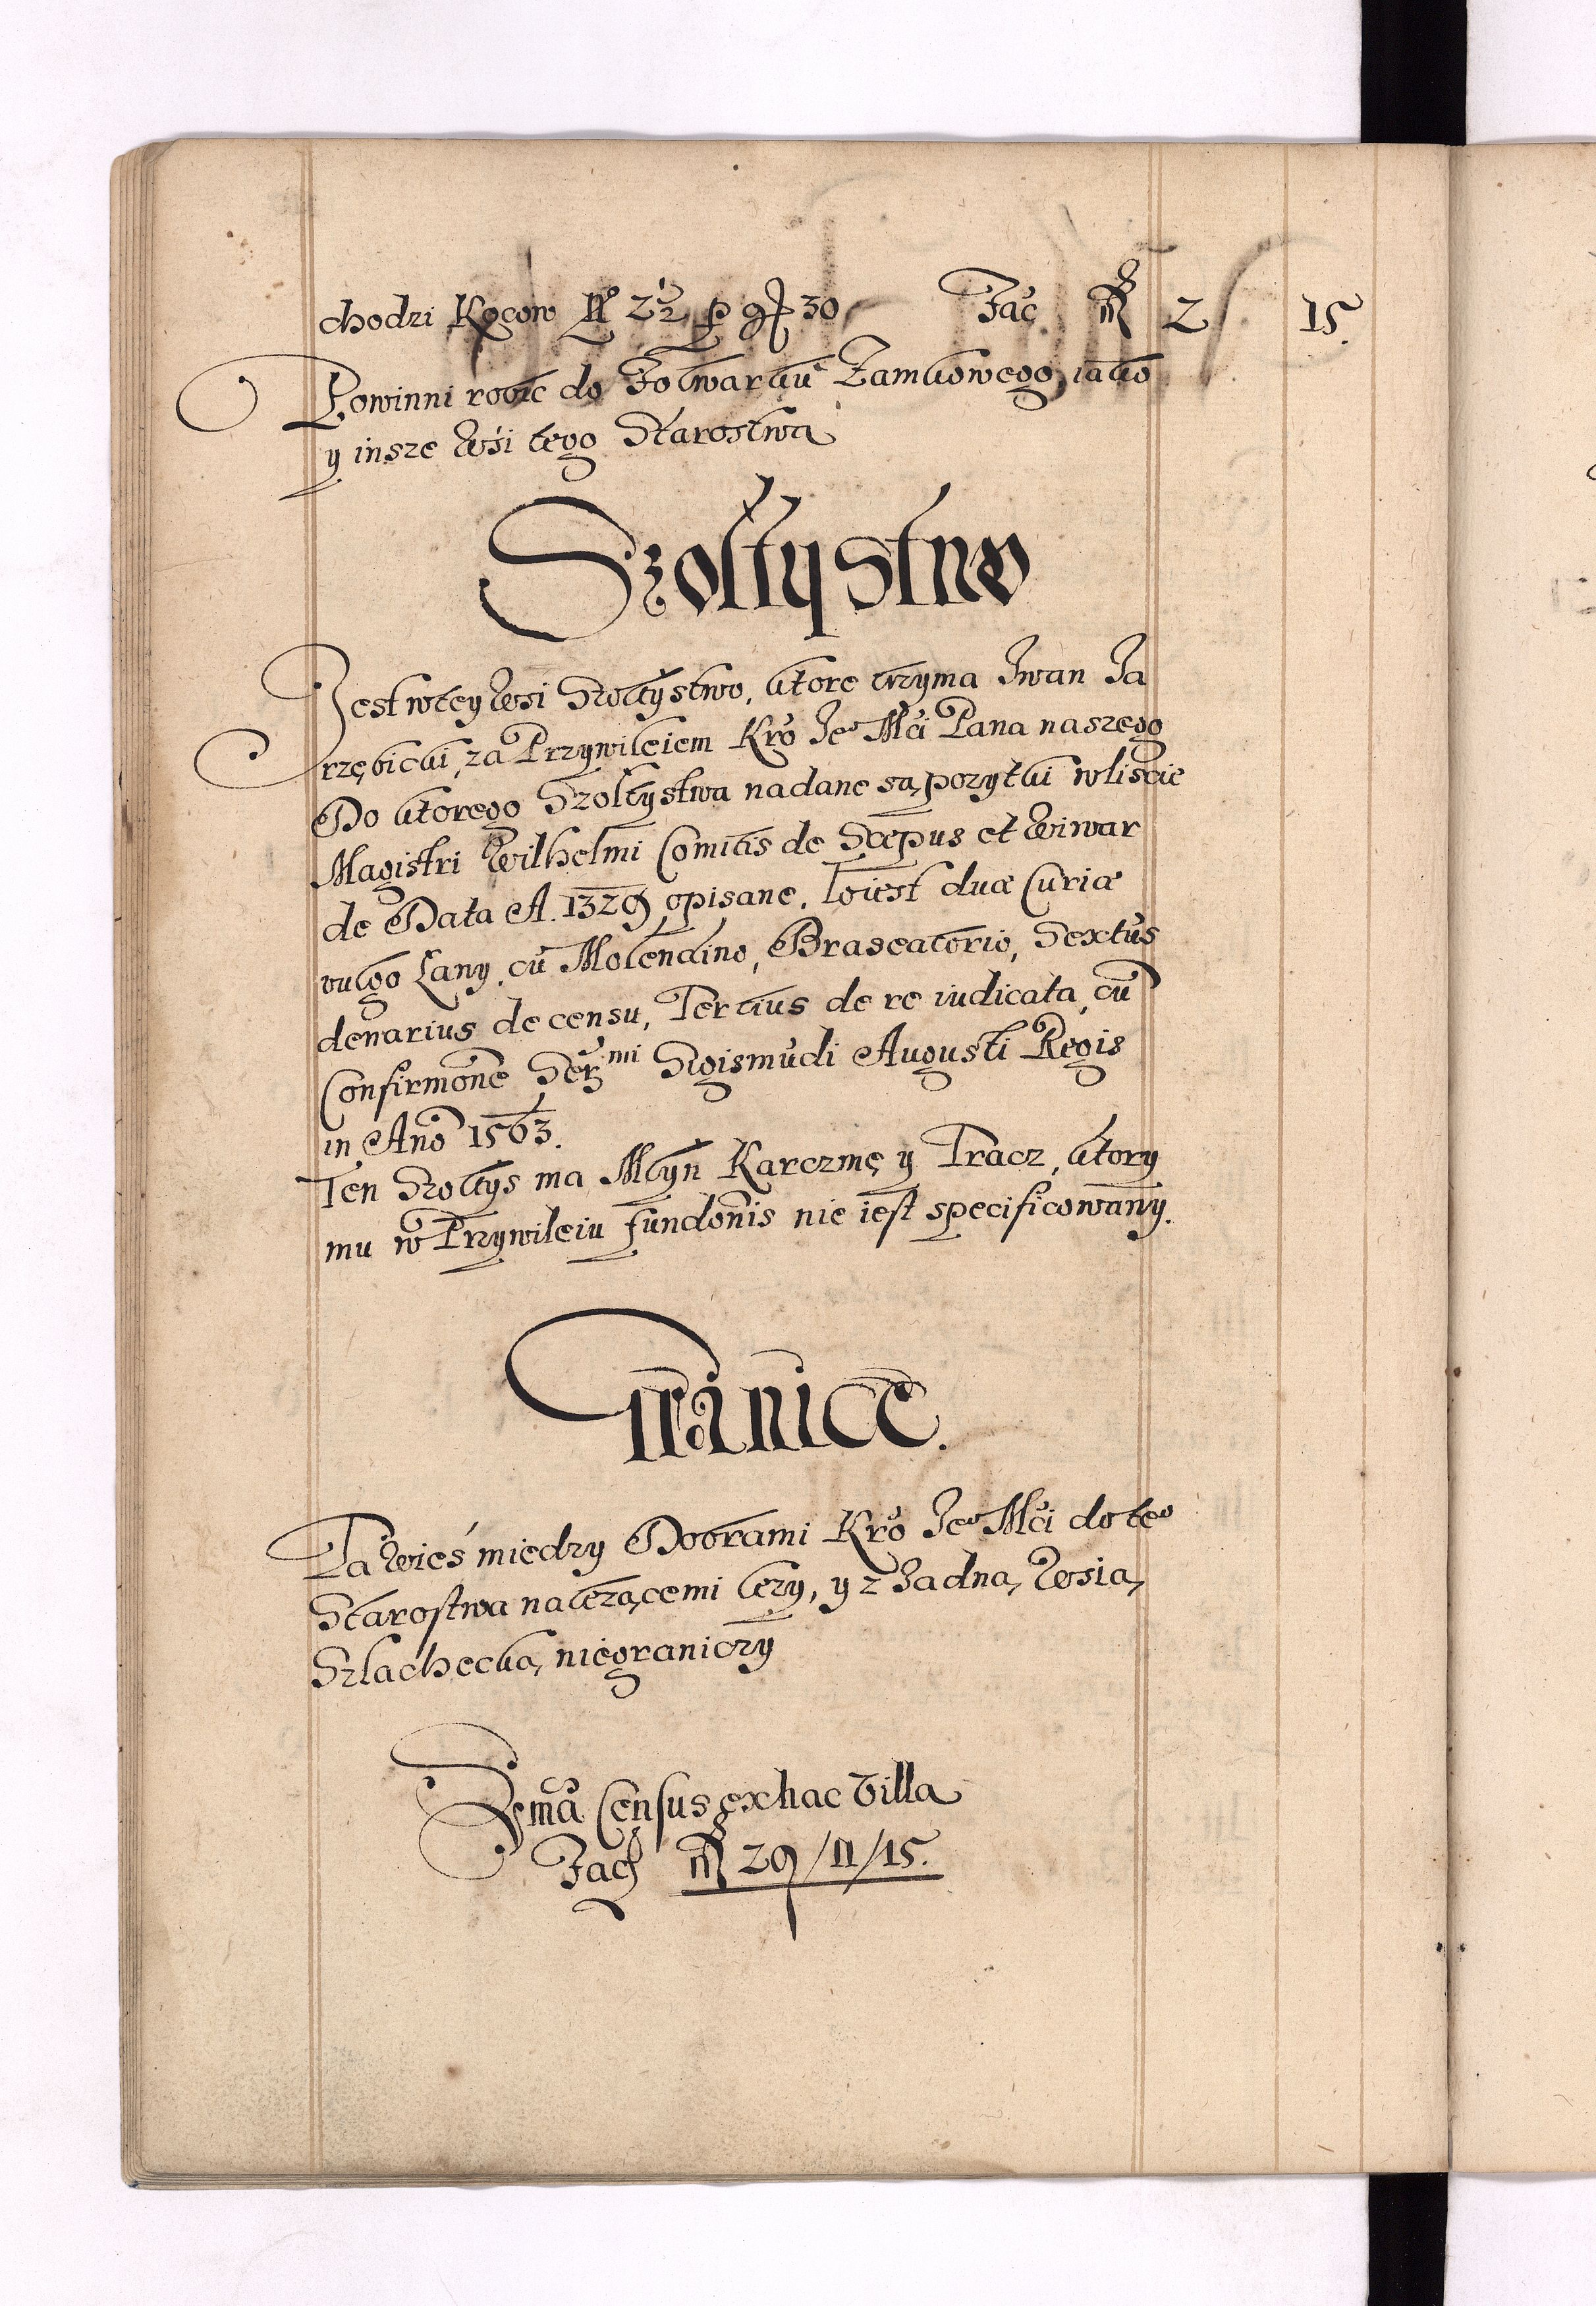 chodzi Kęcow No 2½ p gr 30 Fac fl 2 / 15.
Powinni robic do Folwarku Zamkowego, iako
y insze Wśi tego Starostwa
Szołtystwo
Jest wtey Wsi Szołtystwo, ktore trzyma Iwan Ja
rzębicki, za Przywileiem Kro Jeo Mći Pana naszego
Do ktorego Szołtystwa nadane są pozytki wliscie
Magistri Wilhelmi Comitis de Scepus et Wiwar
de Data A. 1329 opisane, Toiest duæ Curiæ
vulgo Łany, cū Molendino, Braseatorio, Sextus
denarius de censu, Tertius de re iudicata, cū
Confirmone Sermi Sigismūdi Augusti Regis
in Ano 1563.
Ten Szołtys ma Młyn Karczmę y Tracz, ktory
mu w Przywileiu fundonis nie iest specificowany.
Granice.
Ta Wieś miedzy Dobrami Kro Jeo Mći do teo
Starostwa nalezącemi lezy, y z Zadną Wsią
Szlachecką niegraniczy
Sma Census ex hac Villa
Fac fl 29 / 11 / 15.